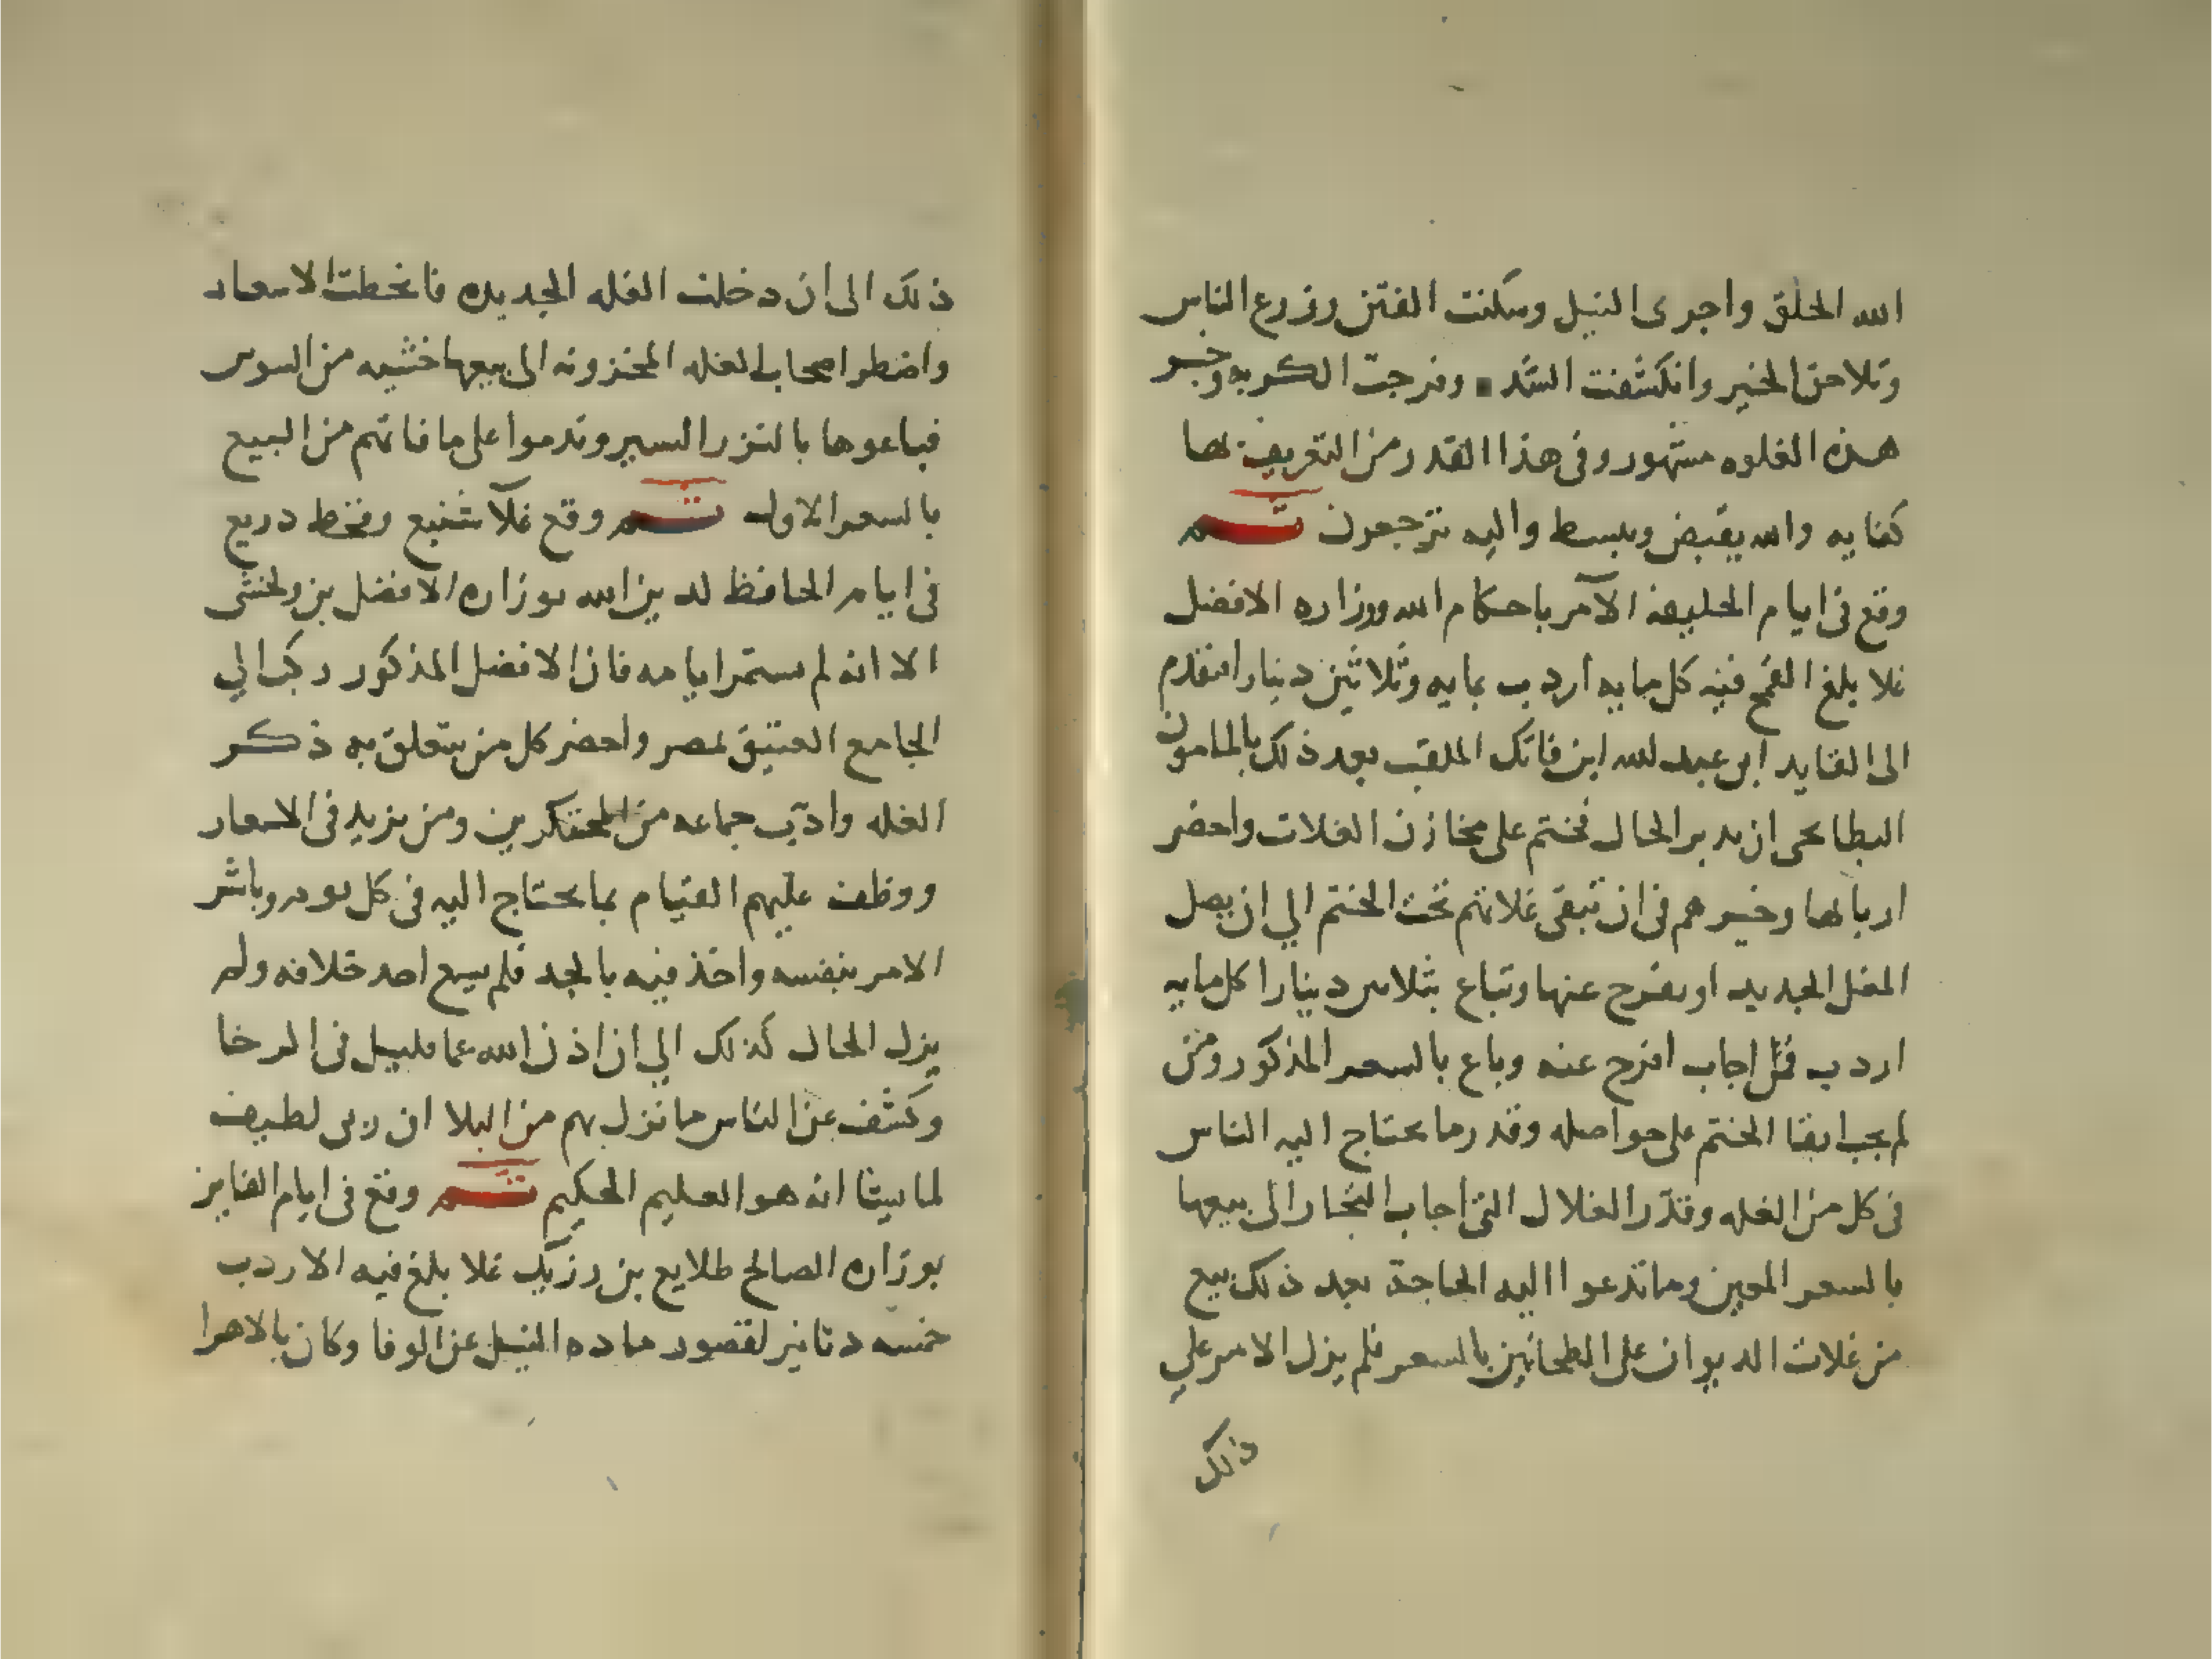 الله الخلق واجرى النيل وسكنت الفتن وزرع الناس
وتلاحق الخير وانكشفت الشد وفرجت الكربه وخبر
هذه الغلوه مشهور وفى هذا القدر من التعريف لها
كفايه والله يقبض ويبسط واليه ترجعون ثم
وقع فى ايام الخليفه الآمر باحكام الله ووزاره الافضل
غلا بلغ القمح فيه كل مايه اردب بمايه وثلاثين دينارا فتقدم
الى القايد ابى عبد لله ابن فاتك الملقب بعد ذلك بالمامون
البطايحى ان يدبر الحال فختم على مخازن الغلات واحضر
اربابها وخيرهم فى ان تبقى غلاتهم تحت الختم الي ان يصل
المغل الجديد او يفرج عنها وتباع بثلاثين دينارا كل مايه
اردب فمن اجاب افرج عنه وباع بالسعر المذكور ومن
لم يجب ابقا الختم على حواصله وقدر ما يحتاج اليه الناس
فى كل من الغله وقدر الغلال التى اجاب التجار الى بيعها
بالسعر المعين وما تدعوا اليه الحاجة بعد ذلك بيع
من غلات الديوان على الطحانين بالسعر فلم يزل الامر علي
ذلك
ذلك الى ان دخلت الغله الجديده فانحطت الاسعار
واضطر اصحاب الغله المخزونه الى بيعها خشيه من السوس
فباعوها بالنزر اليسير وندموا على ما فاتهم من البيع
بالسعر الاول ثم وقع غلآ شنيع وقحط دريع
فى ايام الحافظ لدين الله بوزاره الافضل بن ولخشى
الا انه لم يستمر ايامه فان الافضل المذكور ركب الي
الجامع العتيق بمصر واحضر كل من يتعلق به ذكر
الغله وادب جماعه من المحتكرين ومن يزيد فى الاسعار
ووظف عليهم القيام بما يحتاج اليه فى كل يوم وباشر
الامر بنفسه واخذ فيه بالجد فلم يسع احد خلافه ولم
يزل الحال كذلك الي ان اذن الله عما قليل فى الرخا
وكشف عن الناس ما نزل بهم من البلا ان ربى لطيف
لما يشا انه هو العليم الحكيم ثم وقع فى ايام الفايز
بوزاره الصالح طلايع بن رزيك غلا بلغ فيه الاردب
خمسه دنانير لقصور ماده النيل عن الوفا وكان بالاهرا